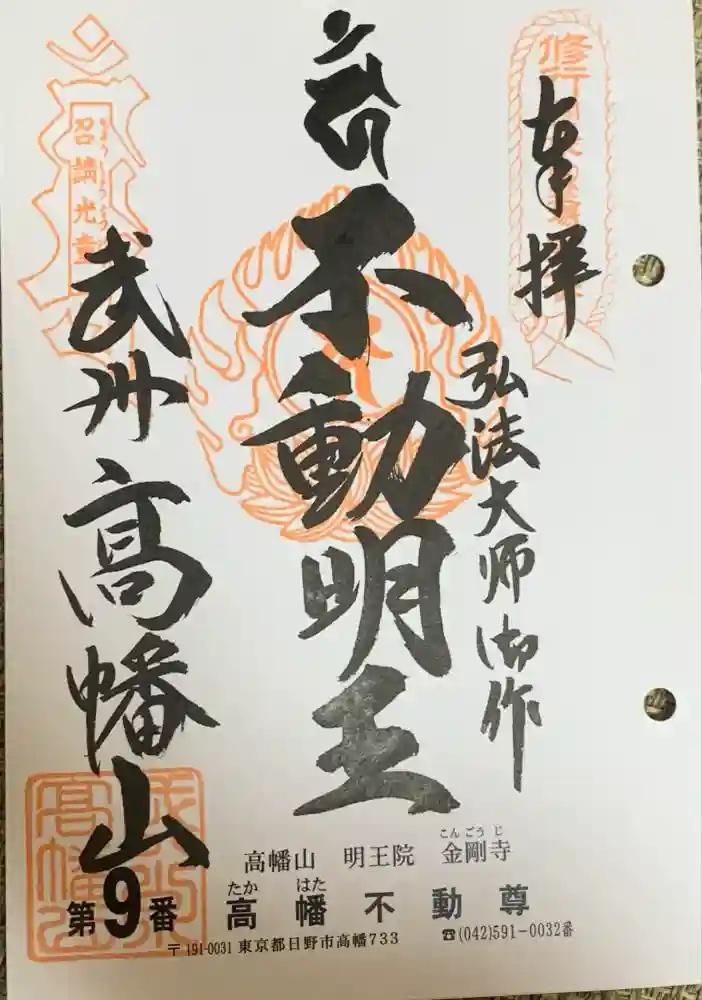 奉拝
弘法大師御作
不動明王
武州
高幡山
招請光童
高幡山 明王院 金剛寺
こんごうじ
第9番 高幡不動尊
たか はた
〒191-0031 東京都日野市高幡733
☎(042)591-0032番